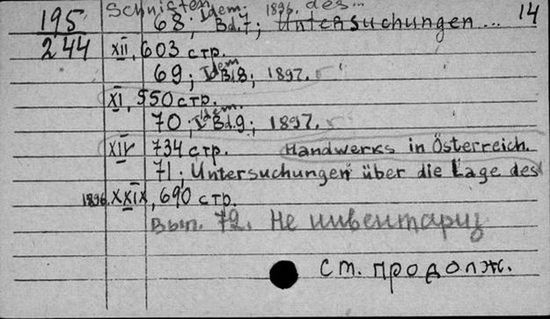 Schriften Idem. 1896. des... 14
195 68; Bd.7; Untersuchungen...
244 XII, 603 стр.
69; Idem Bd.8; 1897.
XI, 550 стр.
70; Idem. Bd.9; 1897.
XIV 734 стр. Handwerks in Österreich.
71; Untersuchungen über die Lage des
1896. XXIX, 690 стр.
Вып. 72. Не инвентариз
ст. продолж.